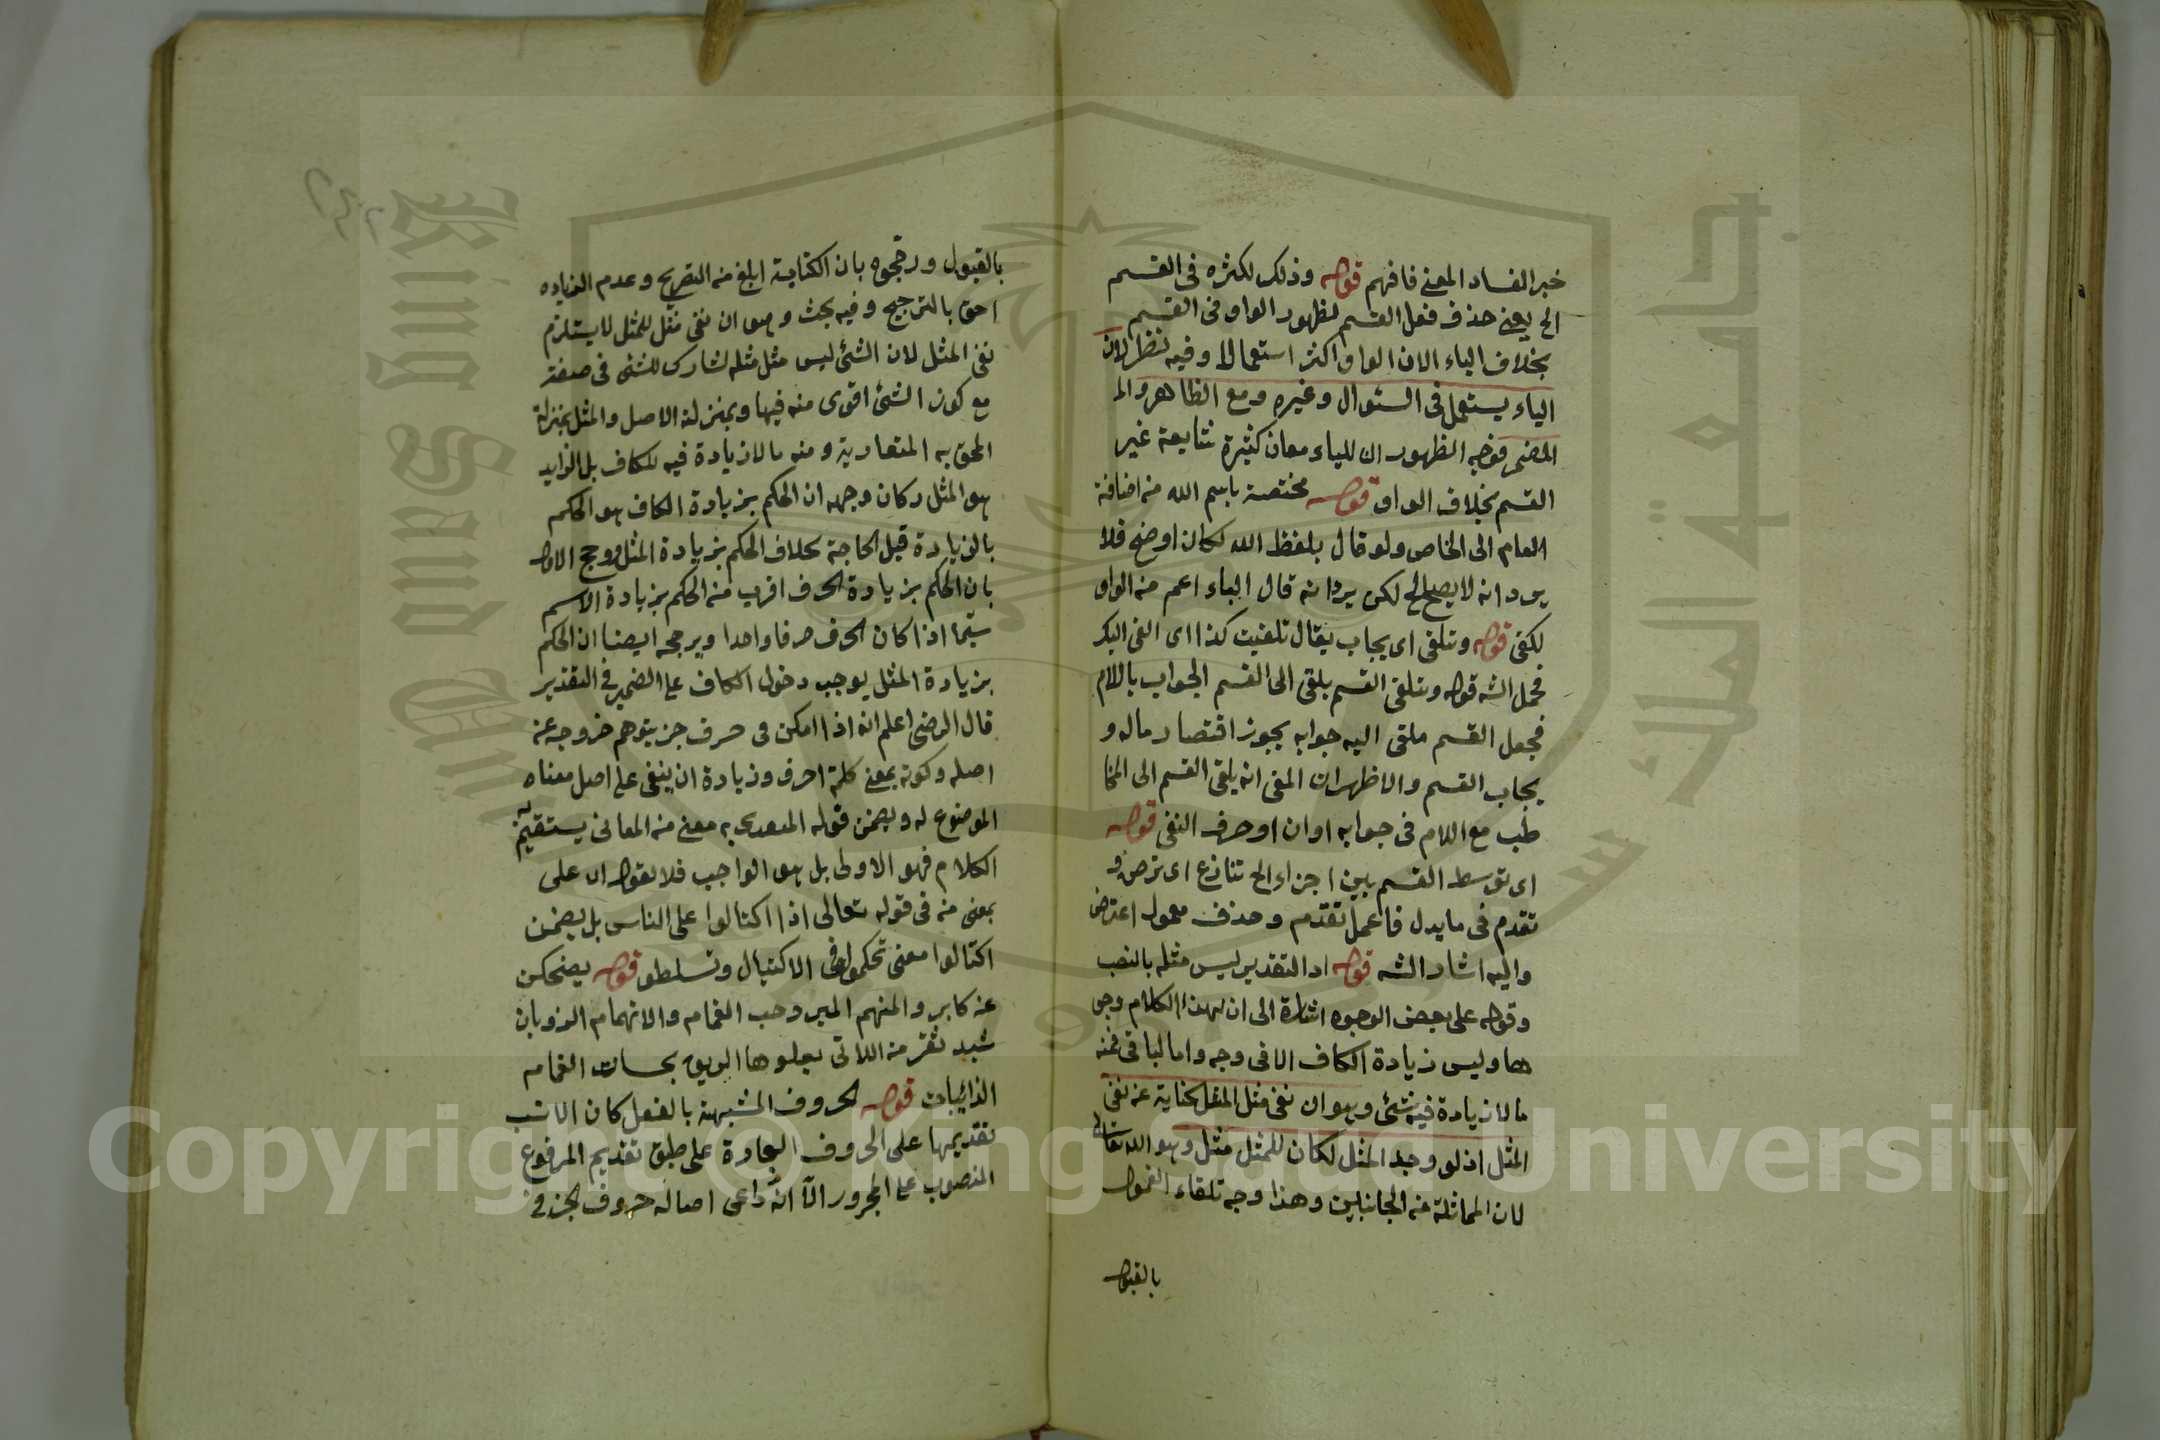 خبر الفساد المعنى فافهم قوله وذلك لكثره فى القسم
الح يعنى حذف فعل القسم لظهور الواو فى القسم
بخلاف الباء لان الواو اكثر استعمالا وفيه نظر لان
الباء يستعمل فى السئوال وغيره ومع الظاهر وا
المضمر فوجه الظهور ان للباء معان كثيرة غير
القسم بخلاف الواو قوله مختصة باسم الله من اضافة
العام الى الخاص ولو قال بلفظ الله لكان اوضح فلا
يرد انه لا يصح الح لكن يرد انه قال الباء اعم من الواو
لكفى قوله وتلقى اى يجاب يقال تلقيت كذا اى
فحمل الشه قوله ويتلقى القسم يلقى الى القسم الجواب باللام
فجعل القسم ملقى اليه جوابه يجوز اقتصار ماله و
يجاب القسم والاظهر ان المعنى انه يلقى القسم الى المخا
طب مع اللام فى جوابه او ان او حرف النفى قوله
اى توسط القسم بين اجزاء الح تنازع اى
تقدم فى ما يدل فاعمل تقدم وحذف معمول اعترض
واليه اشار الشه قوله اذ التقدير ليس مثله بالنصب
وقوله على بعض الوجوه اشارة الى ان لهذا الكلام وجو
ها وليس زيادة الكاف الا فى وجه واما الباقى فمنه
ما لا زيادة فيه شئ وهو ان نفى مثل المثل كناية عن نفى
المثل اذ لو وجد المثل لكان للمثل مثل وهو الله تعالى
لان المماثلة من الجانبين وهذا وجه تلقاه الفحول
بالقبول
بالقبول ورجحوه بان الكناية ابلغ من التصريح وعدم الزياده
احق بالترجيح وفيه بحث وهو ان نفى مثل المثل لا يستلزم
نفى المثل لان الشئ ليس مثل مثله لشارك للشئ فى صفته
مع كون الشئ اقوى منه فيها وبمنزلة الاصل والمثل بمنزلة
الملحق به ومنه ما لا زيادة فيه للكاف بل الزايد
هو المثل وكان وجهه ان الحكم بزيادة الكاف هو الحكم
بالزيادة قبل الحاجة بخلاف الحكم بزيادة المثل ورجح الاول
بان الحكم بزيادة الحرف اقرب من الحكم بزيادة الاسم
سيما اذا كان الحرف حرفا واحدا ويرجحه ايضا ان الحكم
بزيادة المثل يوجب دخول الكاف على الضمير فى التقدير
قال الرضى اعلم انه اذا امكن فى حرف جر يتوهم خروجه عن
اصله وكونه بمعنى كلمة اخرى وزيادة ان يبقى على اصل معناه
الموضوع له ويضمن فعله المعدى به معنى من المعانى يستقيم به
الكلام فهو الاولى بل هو الواجب فلا نقول ان على
بمعنى من فى قوله تعالى اذا اكتالوا على الناس بل يضمن
اكتالوا معنى تحكموا فى الاكتيال وتسلطوا قوله يضحكن
عن كابر والمنهم المبر وحب الغمام والانهمام الذوبان
شبه ثغر من اللاتى الغمامه
الذائبات قوله الحروف المشبهة بالفعل كان الانسب
تقديمها على الحروف الجارة على طبق تقديم المرفوع
المنصوب على المجرور الا انه داعى اصالة حروف الجر فى